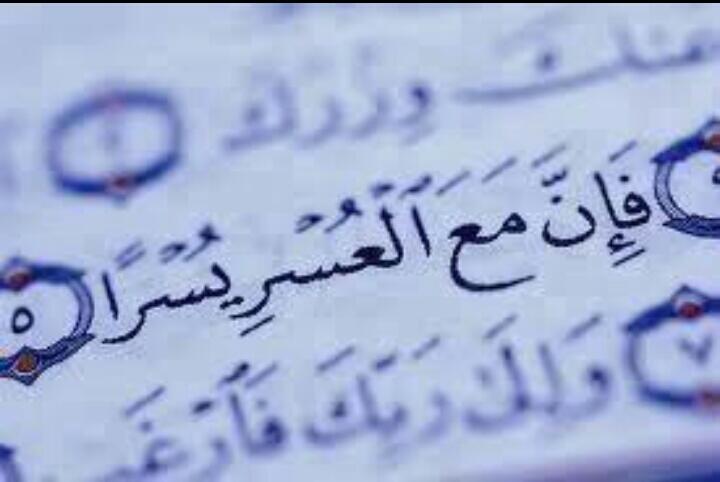 عنك وزرك ٢
فَإِنَّ مَعَ ٱلْعُسْرِ يُسْرًا ٥
٧ وَإِلَىٰ رَبِّكَ فَٱرْغَب